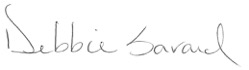 Debbie Savard